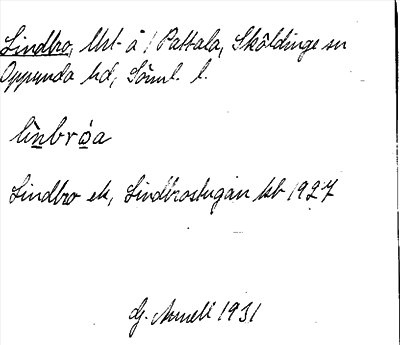 Lindbro, Urt å 1 Pattala, Sköldinge sn
Oppunda hd, Söml. l.
lìnbróa
Lindbro ek, Lindbrostugan kb 1927
Gj. Arnell 1931